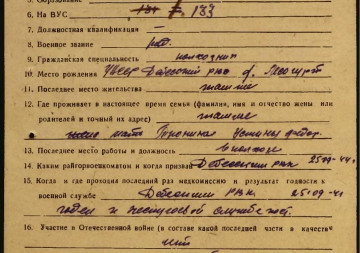 5. Образование
6. На ВУС 133
7. Должностная квалификация —
8. Военное звание ряд.
9. Гражданская специальность колхозник
10. Место рождения УАССР Дебесский р-н д.
11. Последнее место жительства там же
12. Где проживает в настоящее время семья (фамилия, имя и отчество жены или
родителей и точный их адрес) там же
мать
13. Последнее место работы и должность в колхозе
14. Каким райгорвоенкоматом и когда призван Дебесским РВК 25-09-44г.
15. Когда и где проходил последний раз медкомиссию и результат годности к
военной службе Дебесским РВК. 25-09-44
годен к службе
16. Участие в Отечественной войне (в составе какой последней части в качестве